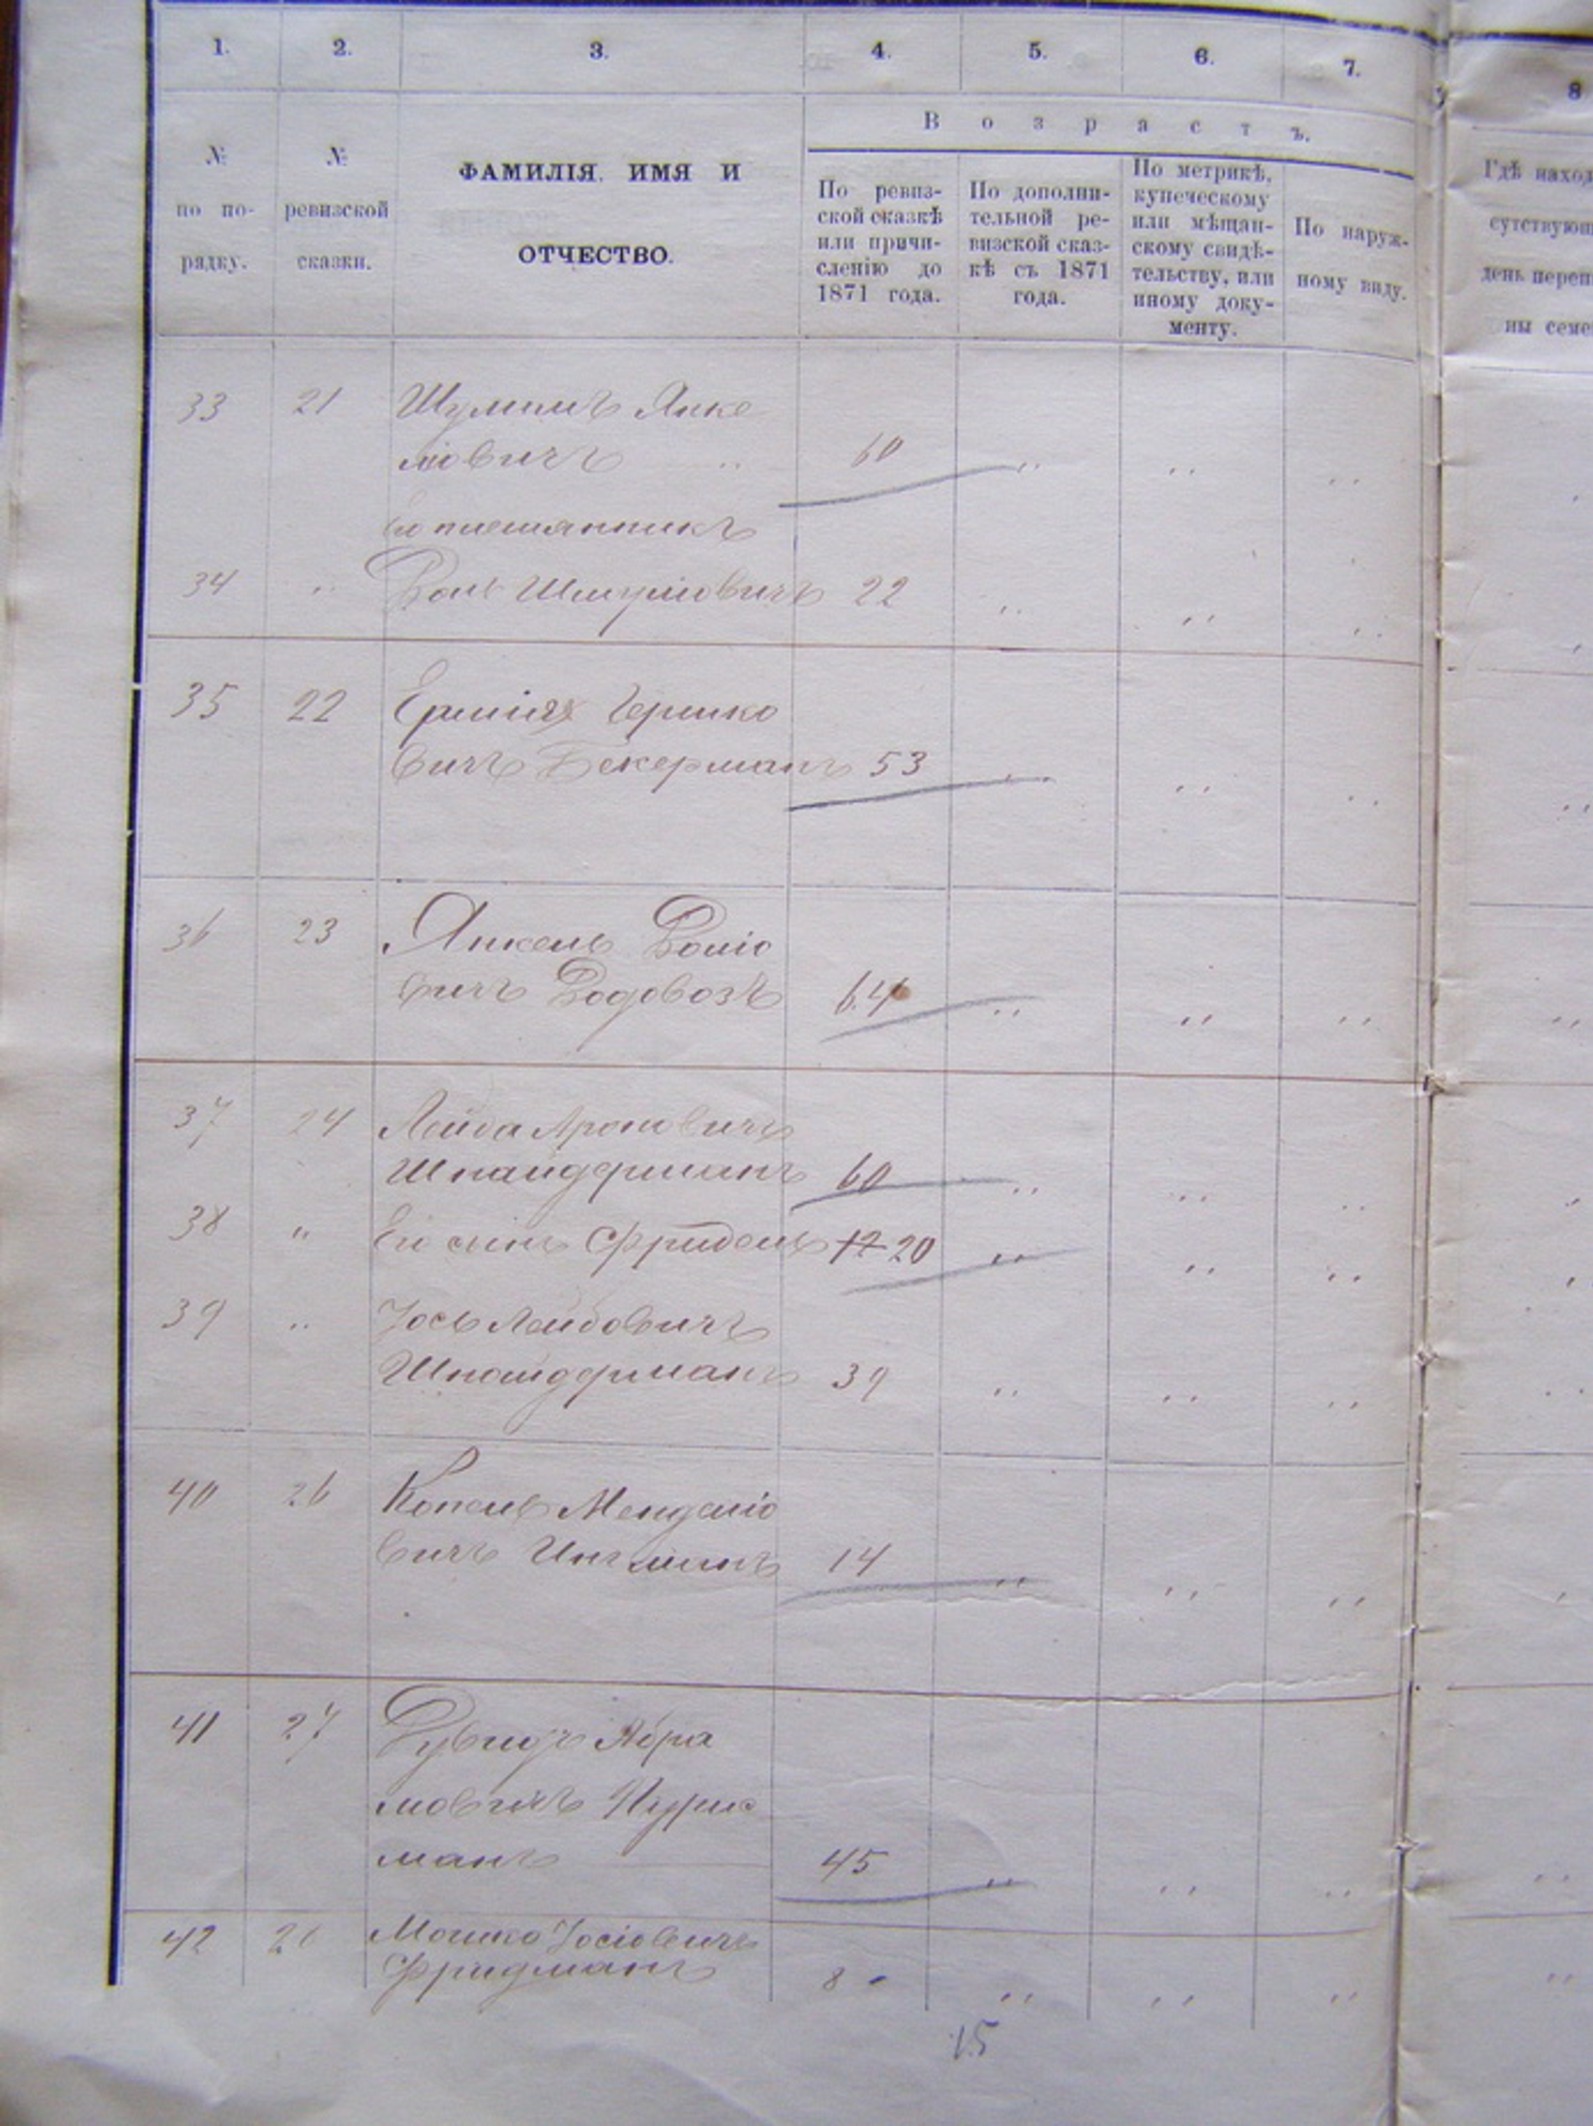 1. 2. 3. 4. 5. 6. 7. 8
№ по по-рядку.
№ ревизской сказки.
ФАМИЛІЯ, ИМЯ И
ОТЧЕСТВО.
Возрастъ.
По ревиз-
ской сказкѣ
или причи-
сленію до
1871 года.
По дополни-
тельной ре-
визской сказ-
кѣ съ 1871
года.
По метрикѣ,
купеческому
или мѣщан-
скому свидѣ-
тельству, или
иному доку-
менту.
По наруж-
ному виду.
Гдѣ наход
сутствующ
день переп
ны семе
33 21 Шулимъ Янке
ліовичъ „ 60 „ „ „
Его племянникъ
34 „ Воль Шмуліовичъ 22 „ „ „
35 22 Гершко
вичъ Бекерманъ 53 „ „ „
36 23 Янкель Воліо
вичъ Водовозъ 64 „ „ „
37 24 Лейба Ароновичъ
Шпайдерманъ 60 „ „ „
38 „ Его сынъ Фридель 12 20 „ „ „
39 „ Іось Лейбовичъ
Шпайдерманъ 39 „ „ „
40 26 Копель Менделіо
вичъ Ингманъ 14 „ „ „
41 27 Абра
мовичъ
манъ 45 „ „ „
42 Мошко Іосіовичъ
Фридманъ 8 „ „ „
15